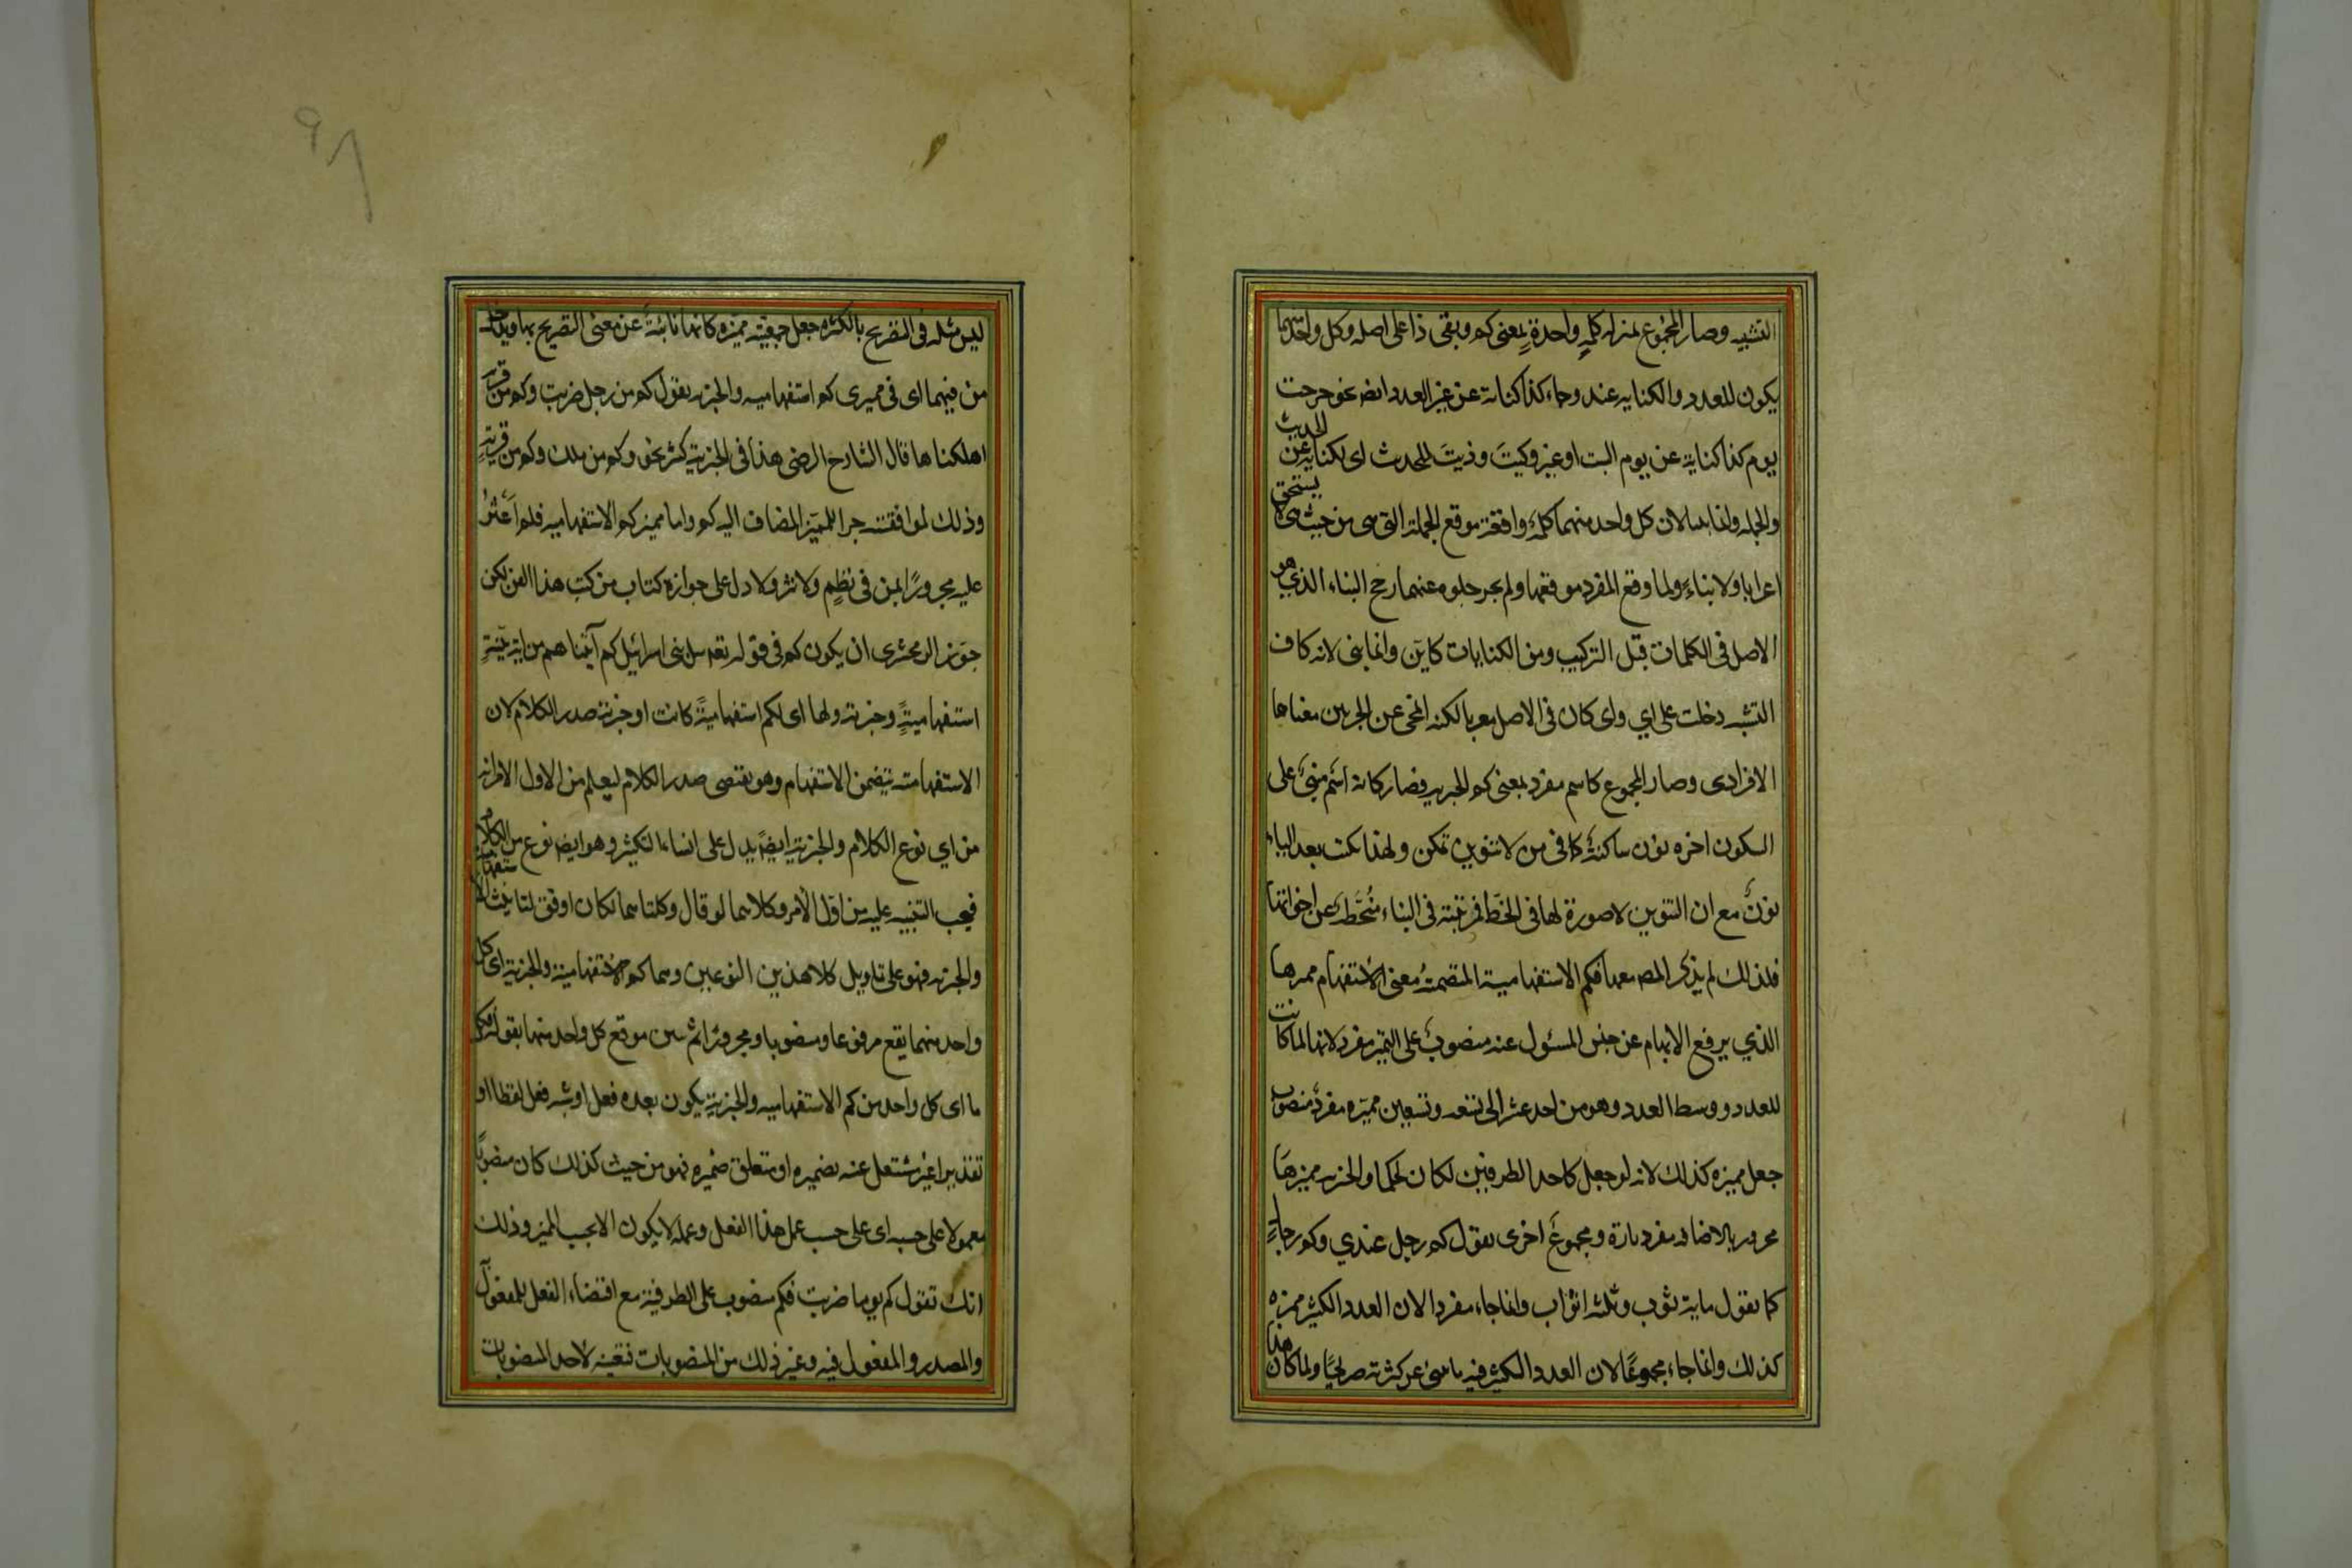 التشبيه وصار المجموع بمنزلة كلمةٍ واحدةٍ بمعنى كم وبقى ذا على اصله وكل واحد منهما
يكون للعدد والكناية عنه وجاء كذا كناية عن غير العدد ايضا نحو خرجت
يوم كذا كناية عن يوم السبت او غيره وكيتَ وذيتَ للحديث اى لكناية عن الحديث
والجملة وانما بنيا لان كل واحد منهما كلمة واقعة موقع الجملة التى هى من حيث هى لا يستحق
اعرابا ولا بناءً ولما وقع المفرد موقعها ولم يجز خلوه عنهما رجح البناء الذي هو
الاصل فى الكلمات قبل التركيب ومن الكنايات كاين وانما بنى لانه كاف
التشبيه دخلت على اي واى كان فى الاصل معربا لكنه انمحى عن الجزءين معناهما
الافرادى وصار المجموع كاسم مفرد بمعنى كم الخبرية فصار كانه اسم مبنى على
السكون اخره نون ساكنة كما فى من لا تنوين تمكن ولهذا يكتب بعد الياء
نونٌ مع ان التنوين لا صورة لها فى الخط فمرتبته فى البناء مُنحَطّة عن اخواتها
فلذلك لم يذكر المصـ معها فكم الاستفهامية المتضمنة معنى الاستفهام مميزها
الذي يرفع الابهام عن جنس المسئول عنه منصوبٌ على التميز مفرد لانها لما كانت
للعدد ووسط العدد وهو من احد عشر الى تسعة وتسعين مميزه مفردٌ منصوب
جعل مميزه كذلك لانه لو جعل كاحد الطرفين لكان تحكما والخبرية مميزهَا
مجرور بالاضافة مفرد تارة ومجموعٌ اخرى تقول كم رجل عندي وكم رجالٍ
كما تقول ماية ثوب وثلثة اثواب وانما جاء مفردا لان العدد الكثير مميزه
كذلك وانما جاء مجموعًا لان العدد الكثير فيه ما ينبئ عن كثرته صريحًا ولما كان هذا
ليس مثله فى التصريح بالكثرة جعل جمعية مميزه كانها نائبةً عن معنى التصريح بها ويدخل
من فيهما اى فى مميزى كم استفهامية والخبرية تقول كم من رجل ضربت وكم من قرية
اهلكناها قال الشارح الرضى هذا فى الخبرية كثير نحو وكم من ملك وكم من قريةٍ
وذلك لموافقته جر المميز المضاف اليه كم واما مميز كم الاستفهامية فلم اَعثُر
عليه مجرورًا بمن فى نظمٍ ولا نثر ولا دل على جوازه كتاب من كتب هذا الفن لكن
جوّز الزمخشرى ان يكون كم فى قوله تعـ سل بنى اسرائيل كم آتيناهم من اية بيّنةٍ
استفهاميةً وخبرية ولها اى لكم استفهاميةً كانت او خبرية صدر الكلام لان
الاستفهامية تتضمن الاستفهام وهو يقتضى صدر الكلام ليعلم من الاول الامر انه
من اي نوع الكلام والخبرية ايضًا يدل على انشاء التكثير وهو ايضا نوع من الكلام
فيجب التنبيه عليه من اوّل الأمر وكلاهما لو قال وكلتاهما لكان اوفق لتانيث الاستفهامية
والخبرية فهو على تاويل كلا هذين النوعين وهما كم الاستفهامية والخبرية اى كل
واحد منهما يقع مرفوعا ومنصوبا ومجرورًا ثم بين موقع كل واحد منها بقوله فكل
ما اى كل واحد من كم الاستفهامية والخبريةِ يكون بعده فعل او شبه فعل لفظا او
تقديرا غير مشتغل عنه بضميره او متعلق ضميره فهو من حيث كذلك كان منصوبًا
معمولا على حسبه اى على حسب عمل هذا الفعل وعمله لا يكون الا بحسب المميز وذلك
انك تقول كم يوما ضربت فكم منصوب على الظرفية مع اقتضاء الفعل للمفعول
والمصدر والمفعول فيه وغير ذلك من المنصوبات فتعينه لاحد المنصوبات
٩٨